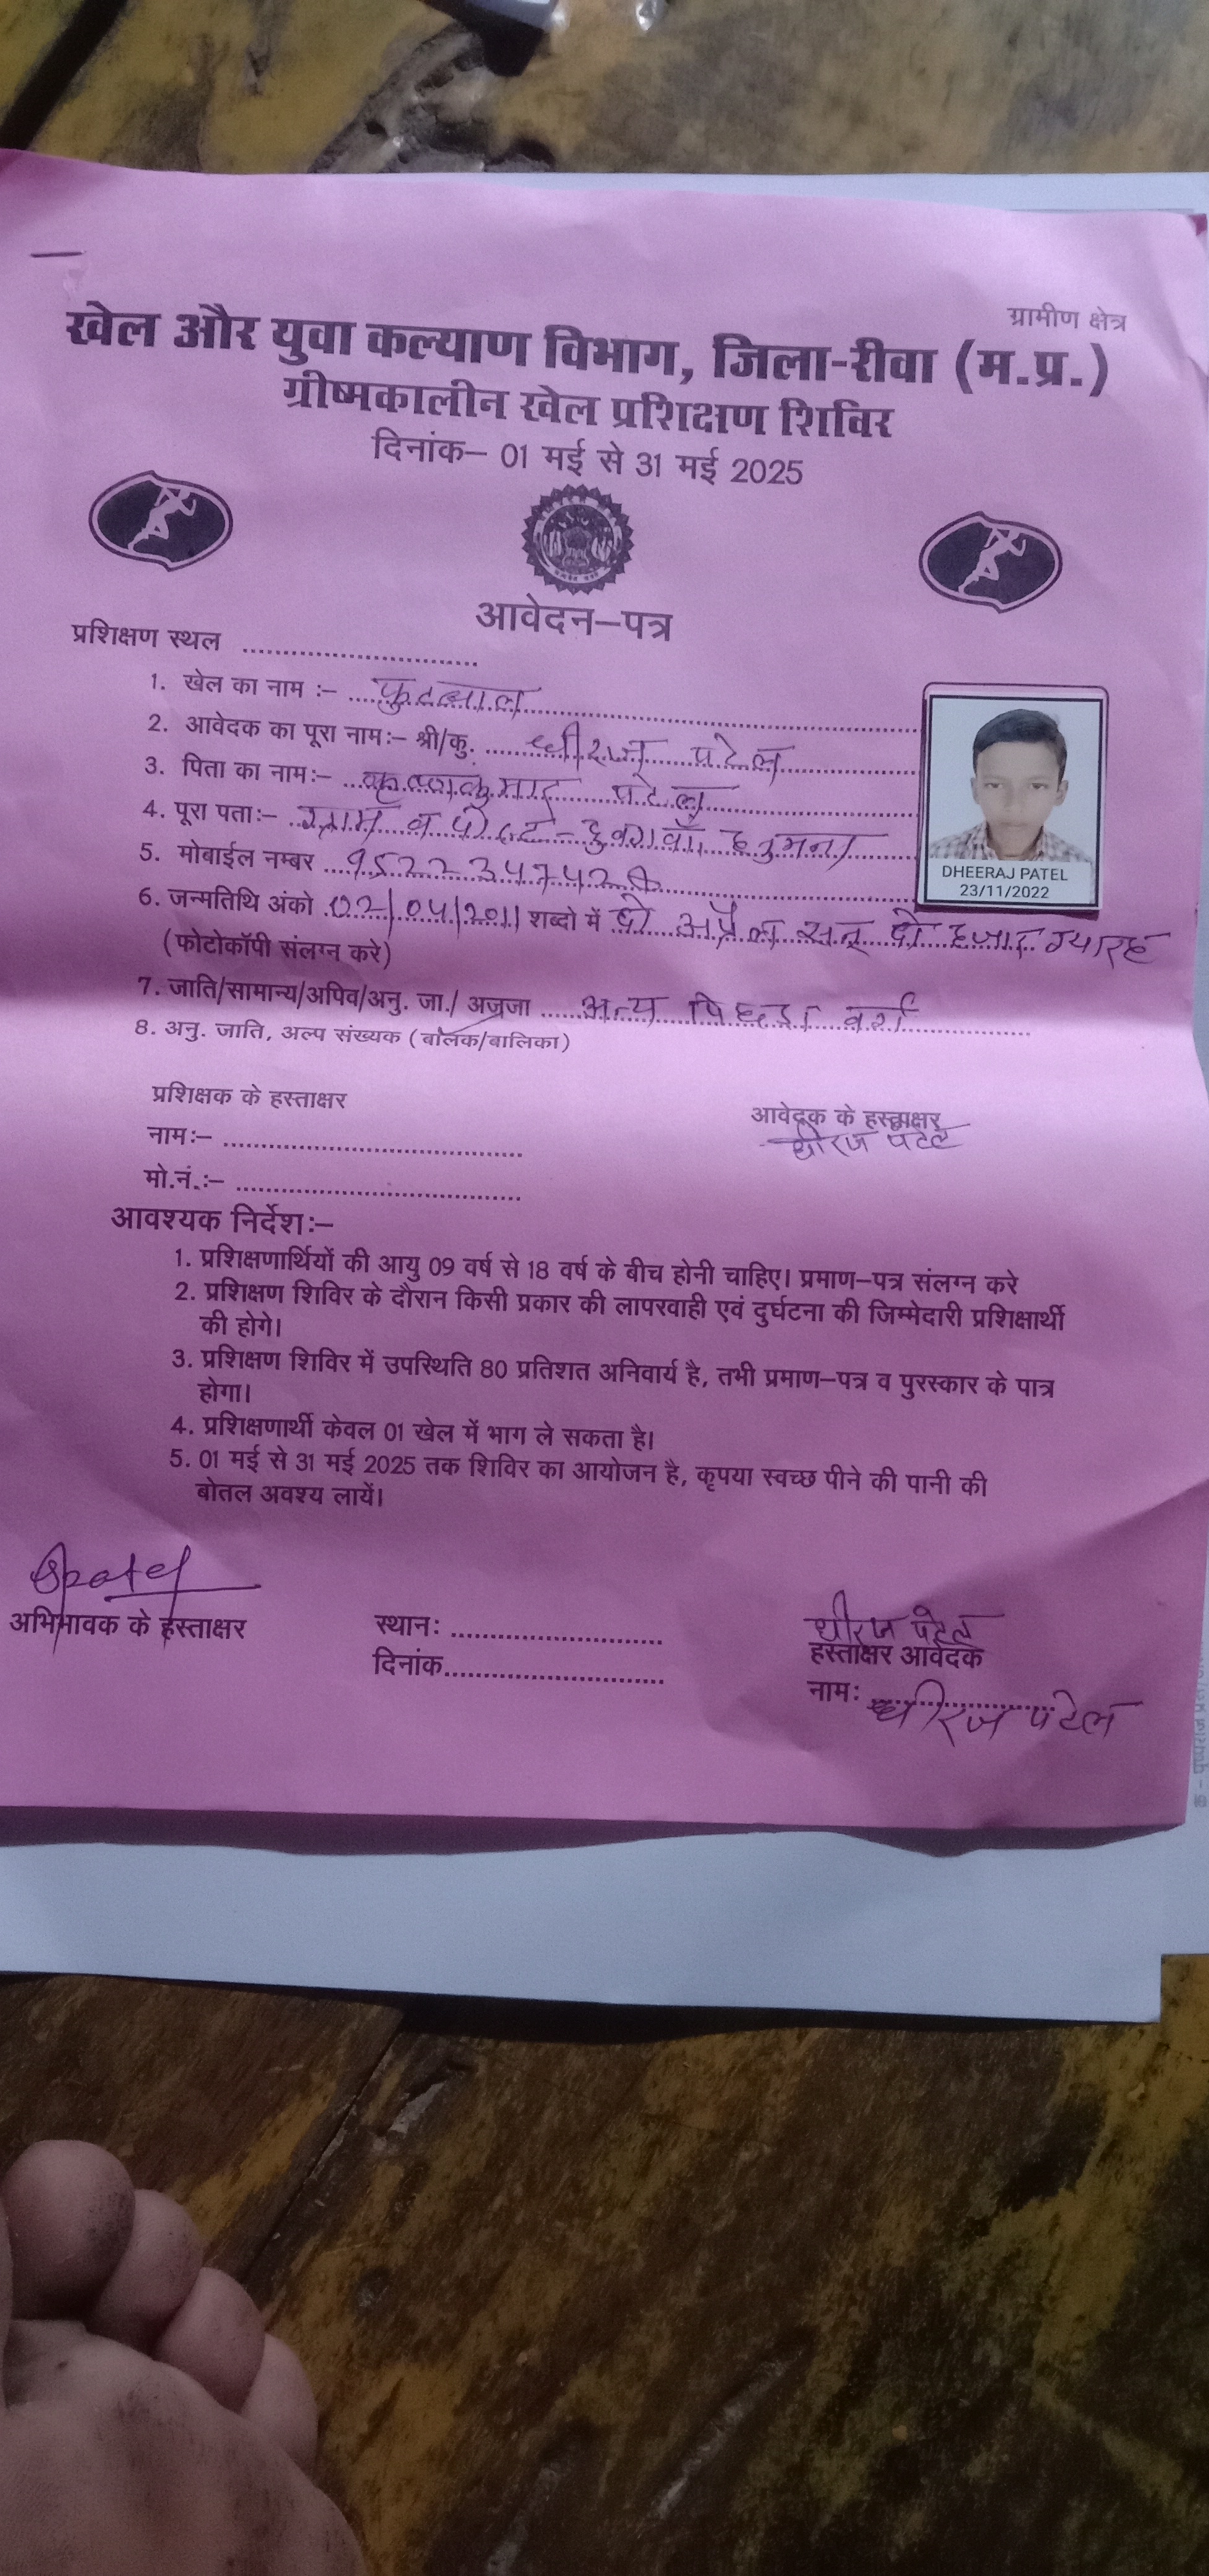 ग्रामीण क्षेत्र
खेल और युवा कल्याण विभाग, जिला-रीवा (म.प्र.)
ग्रीष्मकालीन खेल प्रशिक्षण शिविर
दिनांक– 01 मई से 31 मई 2025
आवेदन–पत्र
प्रशिक्षण स्थल
1. खेल का नाम :– फुटबाल
2. आवेदक का पूरा नाम:– श्री/कु. धीरज पटेल
3. पिता का नाम:– कृष्णकुमार पटेल
4. पूरा पता:– ग्राम व पोस्ट - हनुमना
5. मोबाईल नम्बर
6. जन्मतिथि अंको 02/04/2011 शब्दो में दो अप्रैल सन् दो हजार ग्यारह
(फोटोकॉपी संलग्न करे)
DHEERAJ PATEL
23/11/2022
7. जाति/सामान्य/अपिव/अनु. जा./ अज्रजा अन्य पिछड़ा वर्ग
8. अनु. जाति, अल्प संख्यक (बालक/बालिका)
प्रशिक्षक के हस्ताक्षर
नाम:–
मो.नं.:–
आवेदक के हस्ताक्षर
धीरज पटेल
आवश्यक निर्देश:–
1. प्रशिक्षणार्थियों की आयु 09 वर्ष से 18 वर्ष के बीच होनी चाहिए। प्रमाण–पत्र संलग्न करे
2. प्रशिक्षण शिविर के दौरान किसी प्रकार की लापरवाही एवं दुर्घटना की जिम्मेदारी प्रशिक्षार्थी
की होगे।
3. प्रशिक्षण शिविर में उपस्थिति 80 प्रतिशत अनिवार्य है, तभी प्रमाण–पत्र व पुरस्कार के पात्र
होगा।
4. प्रशिक्षणार्थी केवल 01 खेल में भाग ले सकता है।
5. 01 मई से 31 मई 2025 तक शिविर का आयोजन है, कृपया स्वच्छ पीने की पानी की
बोतल अवश्य लायें।
Spatel
अभिभावक के हस्ताक्षर
स्थान:
दिनांक
धीरज पटेल
हस्ताक्षर आवेदक
नाम: धीरज पटेल